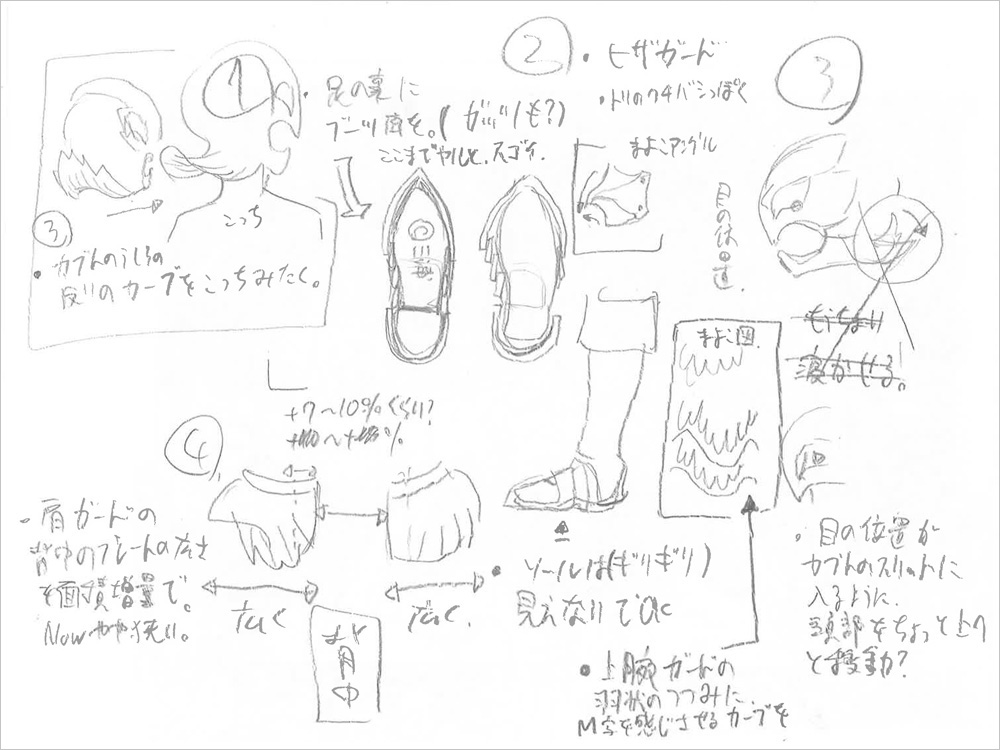 1
・足の裏に
ブーツ底を。(ガッツリも?)
ここまでヤルと、スゴイ.
こっち
3
・カブトのうしろの
反りのカーブをこっちみたく。
2
・ヒザガード
・トリのクチバシっぽく
まよこアングル
3
目の保
もうちょい
寝かせる。
まよこ図.
+7〜10%くらい?
4
・肩ガードの
背中のプレートの広さ
を面積増量で。
Nowやや狭い。
広く
広く.
背中
・ソールは(ギリギリ)
見えなりでOK
・上腕ガードの
羽状のつつみに
M字を感じさせるカーブを
・目の位置が
カブトのスリットに
入るように.
頭部をちょっと上り
と移動?